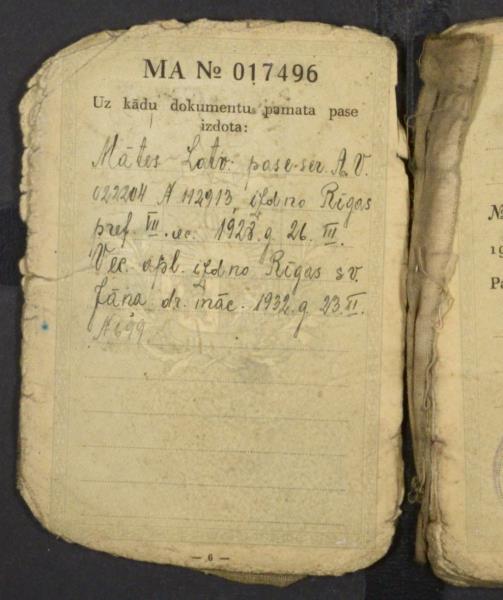 MA № 017496
Uz kādu dokumentu pamata pase
izdota:
Mātes Latv. pase ser. A.V.
022204 № 112913, izd no Rīgas
pref. VII. iec. 1928. g. 26. III.
Vec. apl. izd no Rīgas sv.
Jāņa dr. māc. 1932. g. 23. II.
№ 699
— 6 —
№
19
Pa